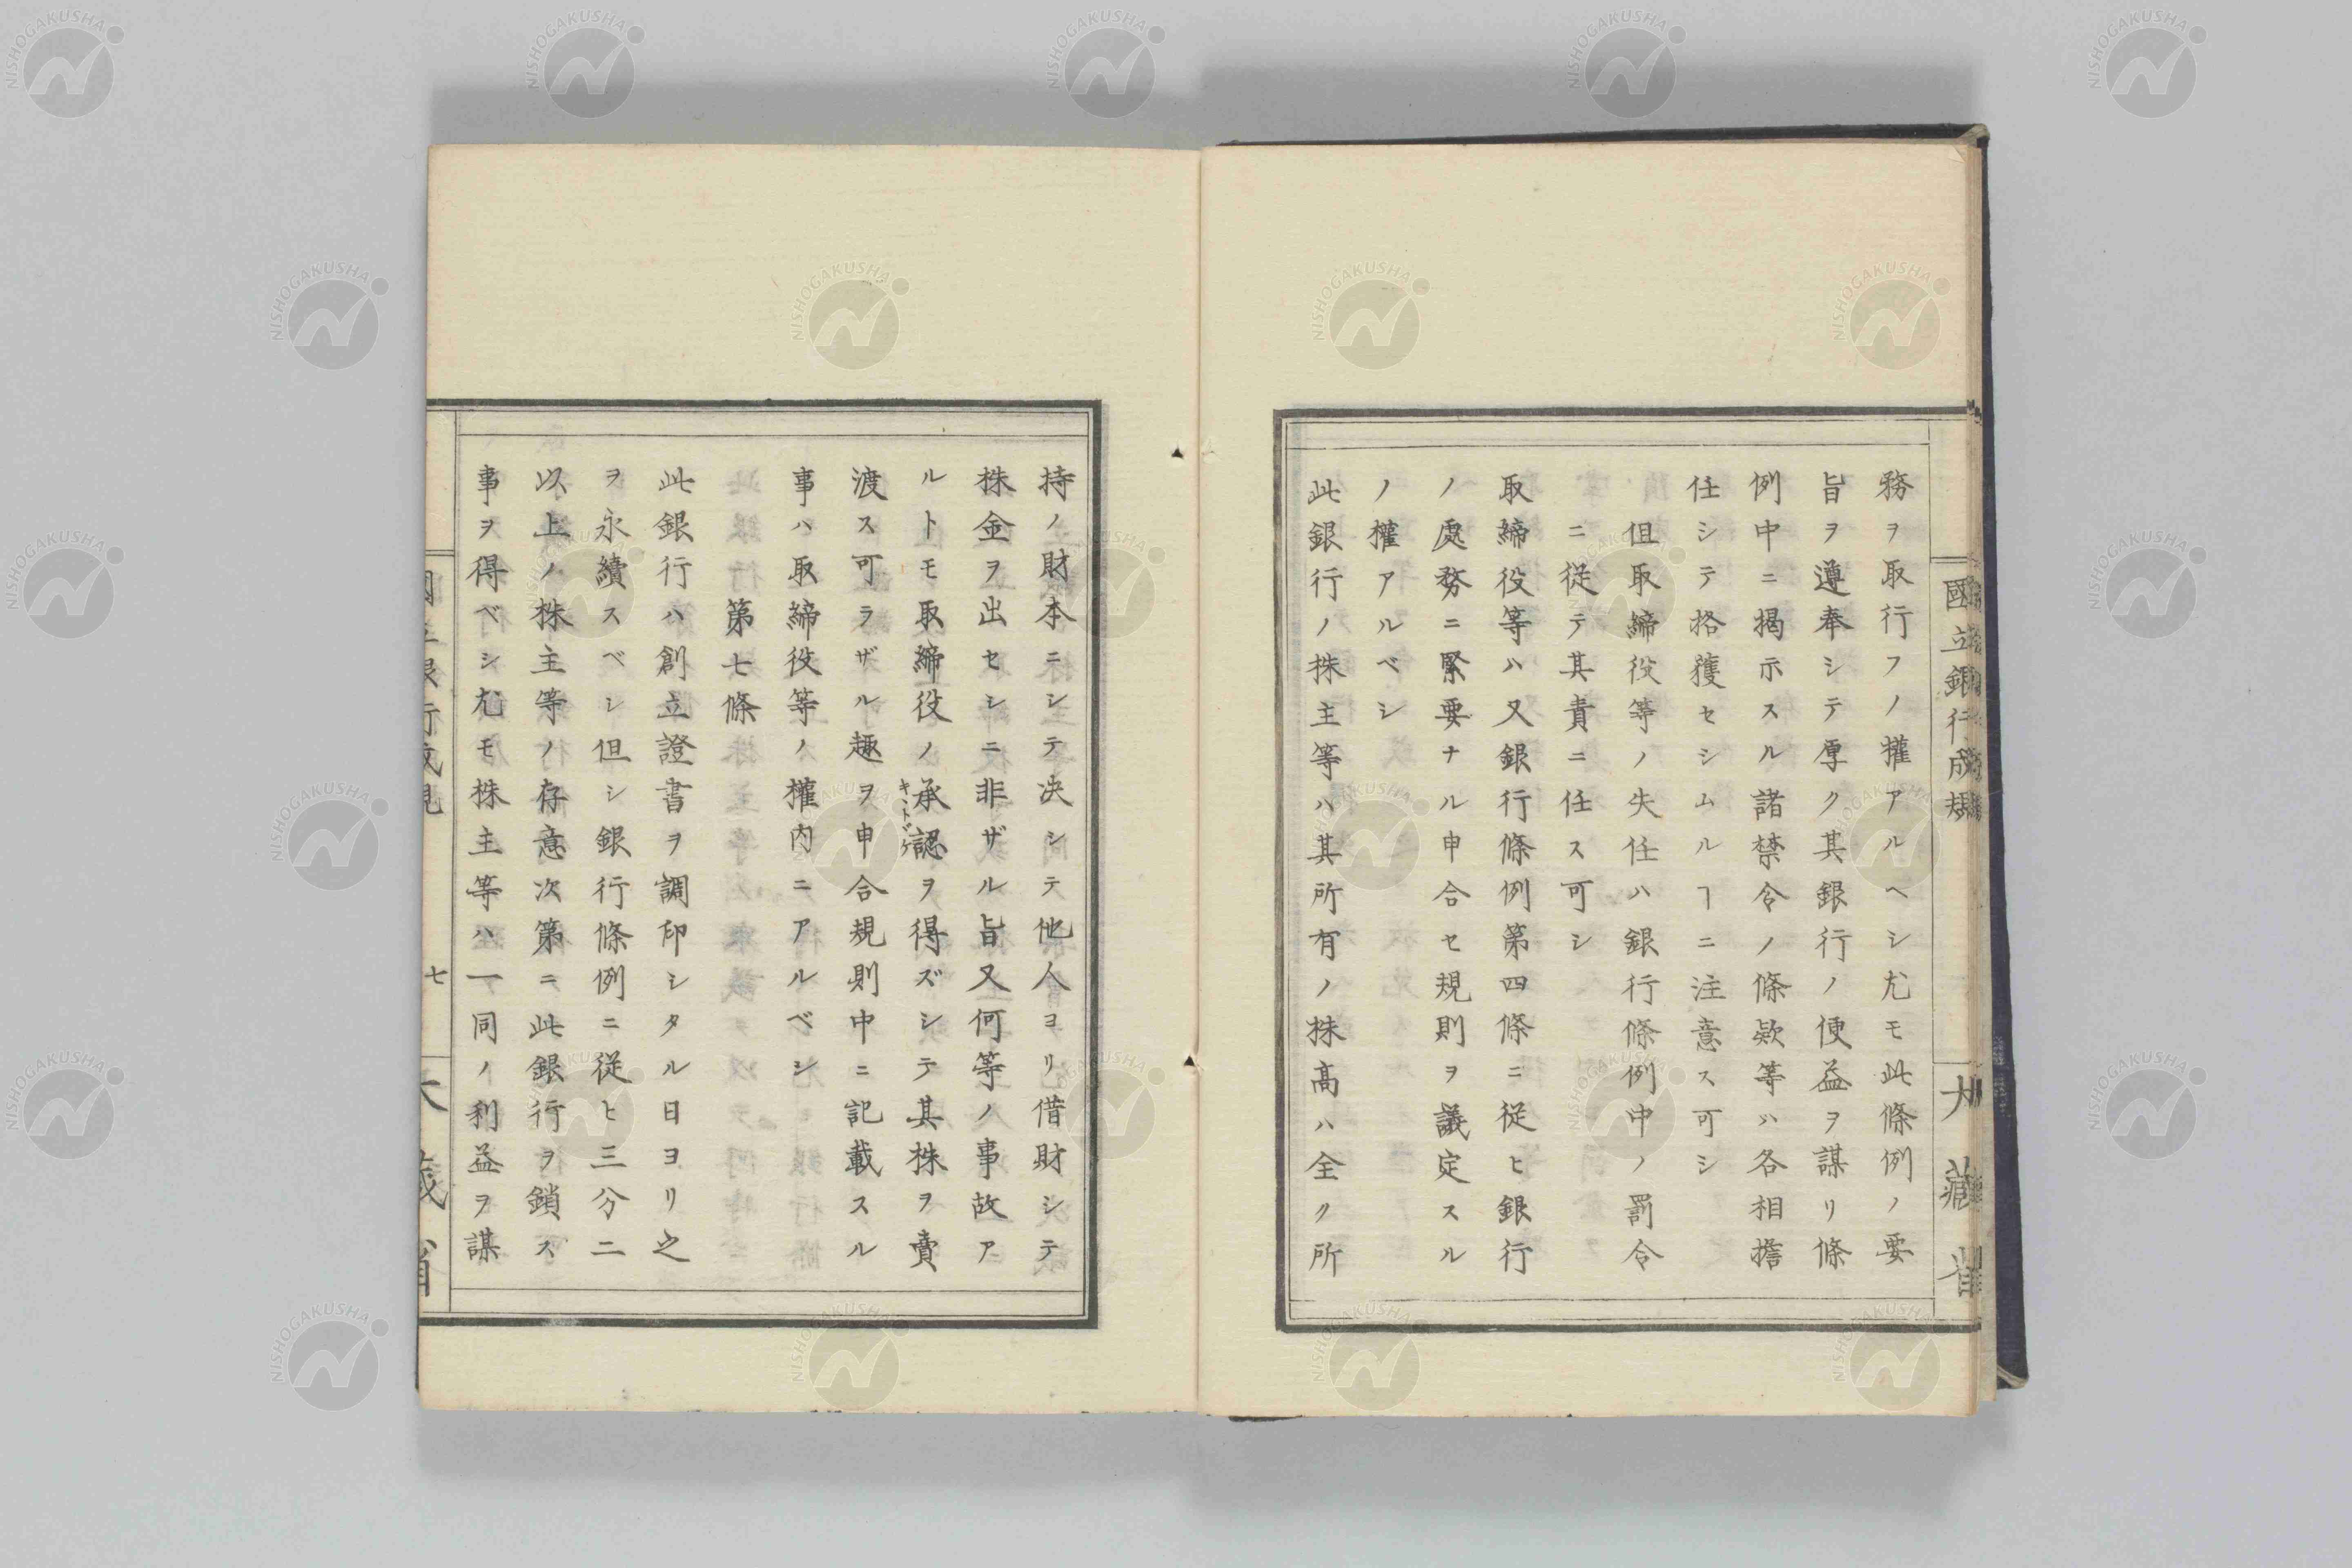 國立銀行成規
大藏省
務ヲ取行フノ權アルヘシ尤モ此條例ノ要
旨ヲ遵奉シテ厚ク其銀行ノ便益ヲ謀リ條
例中ニ揭示スル諸禁令ノ條欵等ハ各相擔
任シテ格護セシムルヿニ注意ス可シ
但取締役等ノ失任ハ銀行條例中ノ罰令
ニ從テ其責ニ任ス可シ
取締役等ハ又銀行條例第四條ニ從ヒ銀行
ノ處務ニ緊要ナル申合セ規則ヲ議定スル
ノ權アルベシ
此銀行ノ株主等ハ其所有ノ株高ハ全ク所
持ノ財本ニシテ決シテ他人ヨリ借財シテ
株金ヲ出セシニ非ザル旨又何等ノ事故ア
ルトモ取締役ノ承認ヲ得ズシテ其株ヲ賣
渡ス可ラザル趣ヲ申合規則中ニ記載スル
事ハ取締役等ノ權内ニアルベシ
第七條
此銀行ハ創立證書ヲ調印シタル日ヨリ之
ヲ永續スベシ但シ銀行條例ニ從ヒ三分二
以上ノ株主等ノ存意次第ニ此銀行ヲ鎖ス
事ヲ得ベシ尤モ株主等ハ一同ノ利益ヲ謀
七
NISHOGAKUSHA